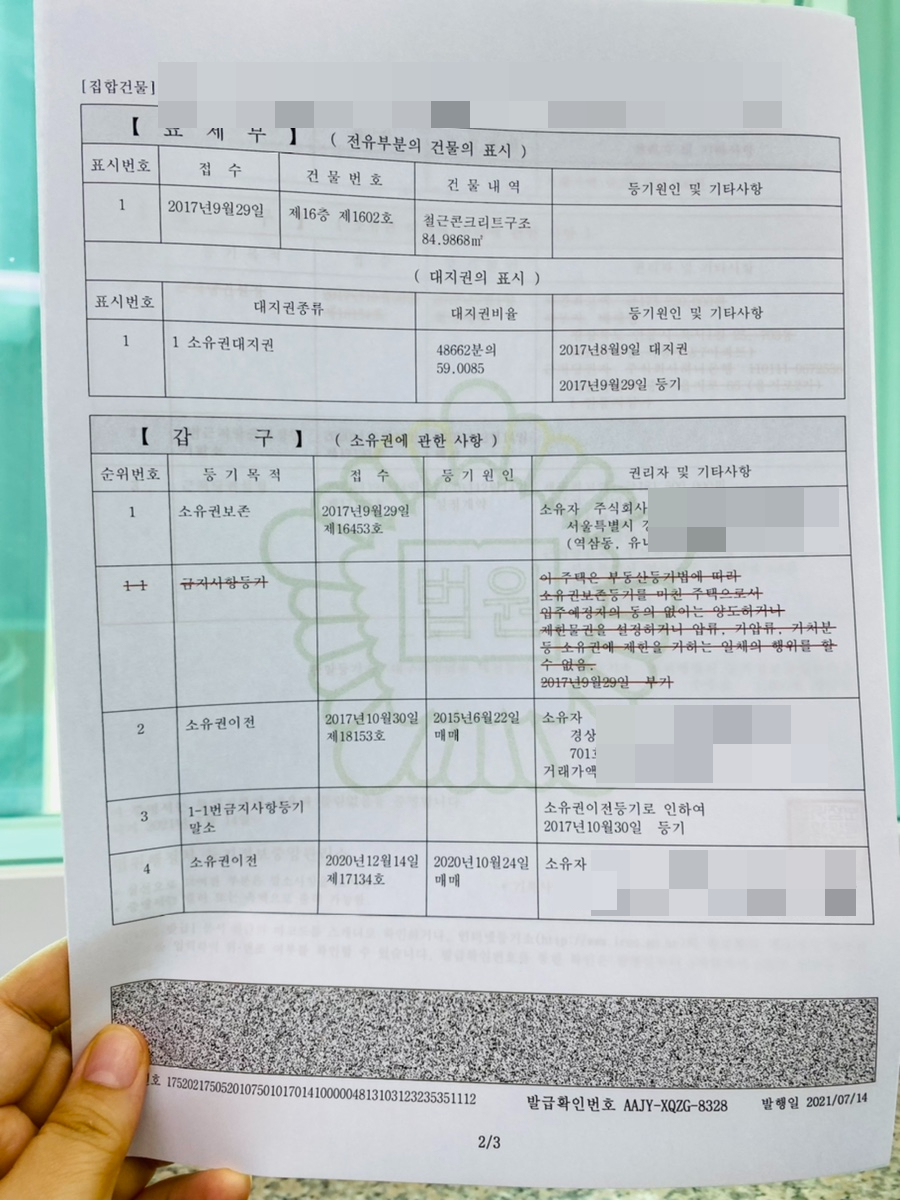 [집합건물]
【 표 제 부 】 ( 전유부분의 건물의 표시 )
표시번호 접 수 건 물 번 호 건 물 내 역 등기원인 및 기타사항
1 2017년9월29일 제16층 제1602호 철근콘크리트구조
84.9868㎡
( 대지권의 표시 )
표시번호 대지권종류 대지권비율 등기원인 및 기타사항
1 1 소유권대지권 48662분의 2017년8월9일 대지권
59.0085
2017년9월29일 등기
【 갑 구 】 ( 소유권에 관한 사항 )
순위번호 등 기 목 적 접 수 등 기 원 인 권리자 및 기타사항
1 소유권보존 2017년9월29일 소유자 주식회사
제16453호 서울특별시
(역삼동,
1-1 금지사항등기 이 주택은 부동산등기법에 따라
소유권보존등기를 마친 주택으로서
입주예정자의 동의 없이는 양도하거나
제한물권을 설정하거나 압류, 가압류, 가처분
등 소유권에 제한을 가하는 일체의 행위를 할
수 없음.
2017년9월29일 부기
2 소유권이전 2017년10월30일 2015년6월22일 소유자
제18153호 매매 경상
701
거래가액
3 1-1번금지사항등기 소유권이전등기로 인하여
말소 2017년10월30일 등기
4 소유권이전 2020년12월14일 2020년10월24일 소유자
제17134호 매매
법원
번호 17520217505201075010170141000004813103123235351112 발급확인번호 AAJY-XQZG-8328 발행일 2021/07/14
2/3